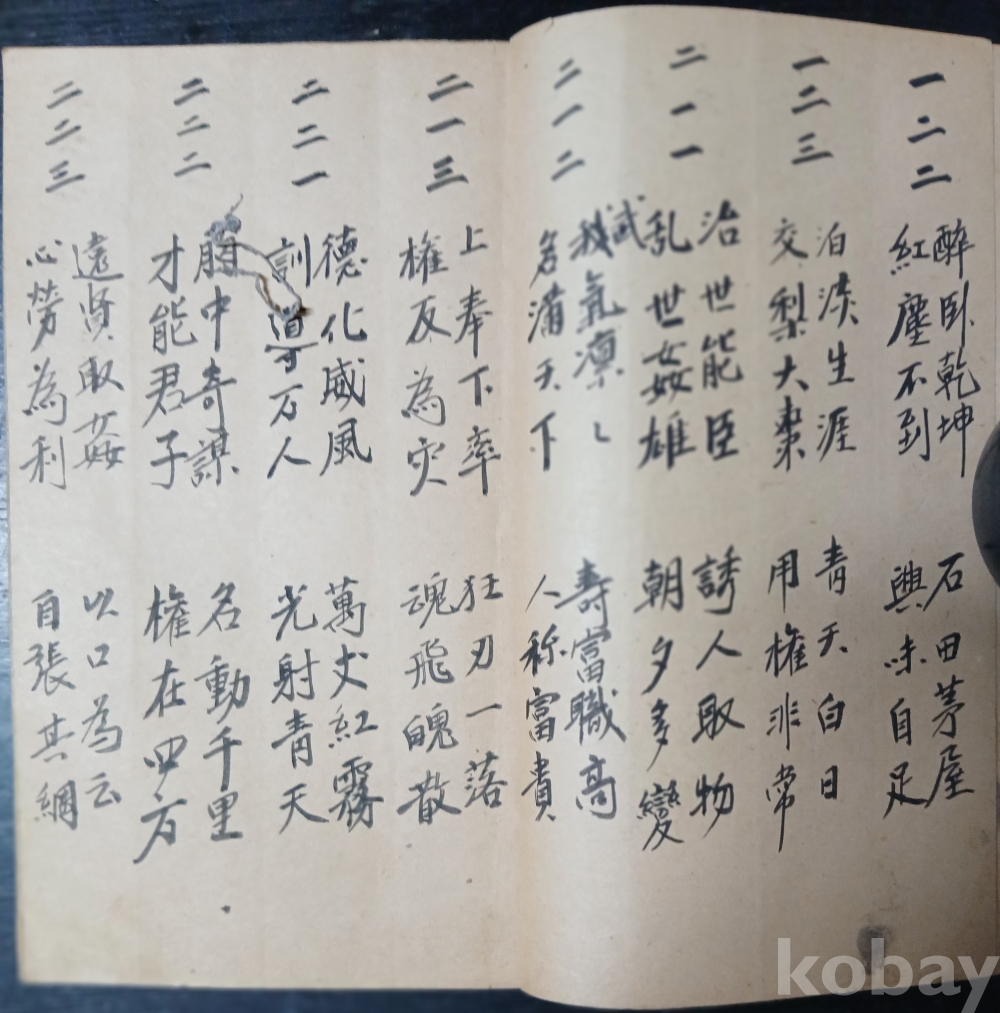 一二二
醉臥乾坤 石田茅屋
紅塵不到 興味自足
一二三
泊淡生涯 青天白日
交梨大棗 用權非常
二一一
治世能臣 誘人取物
乱世姦雄 朝夕多變
二一二
試
我氣凛〻 壽富職高
名滿天下 人稱富貴
二一三
上奉下率 狂刃一落
權反為灾 魂飛魄散
二二一
德化威風 萬丈紅霧
訓導万人 光射青天
二二二
胸中奇謀 名動千里
才能君子 權在四方
二二三
遠賢取姦 以口為云
心勞為利 自張其網
kobay